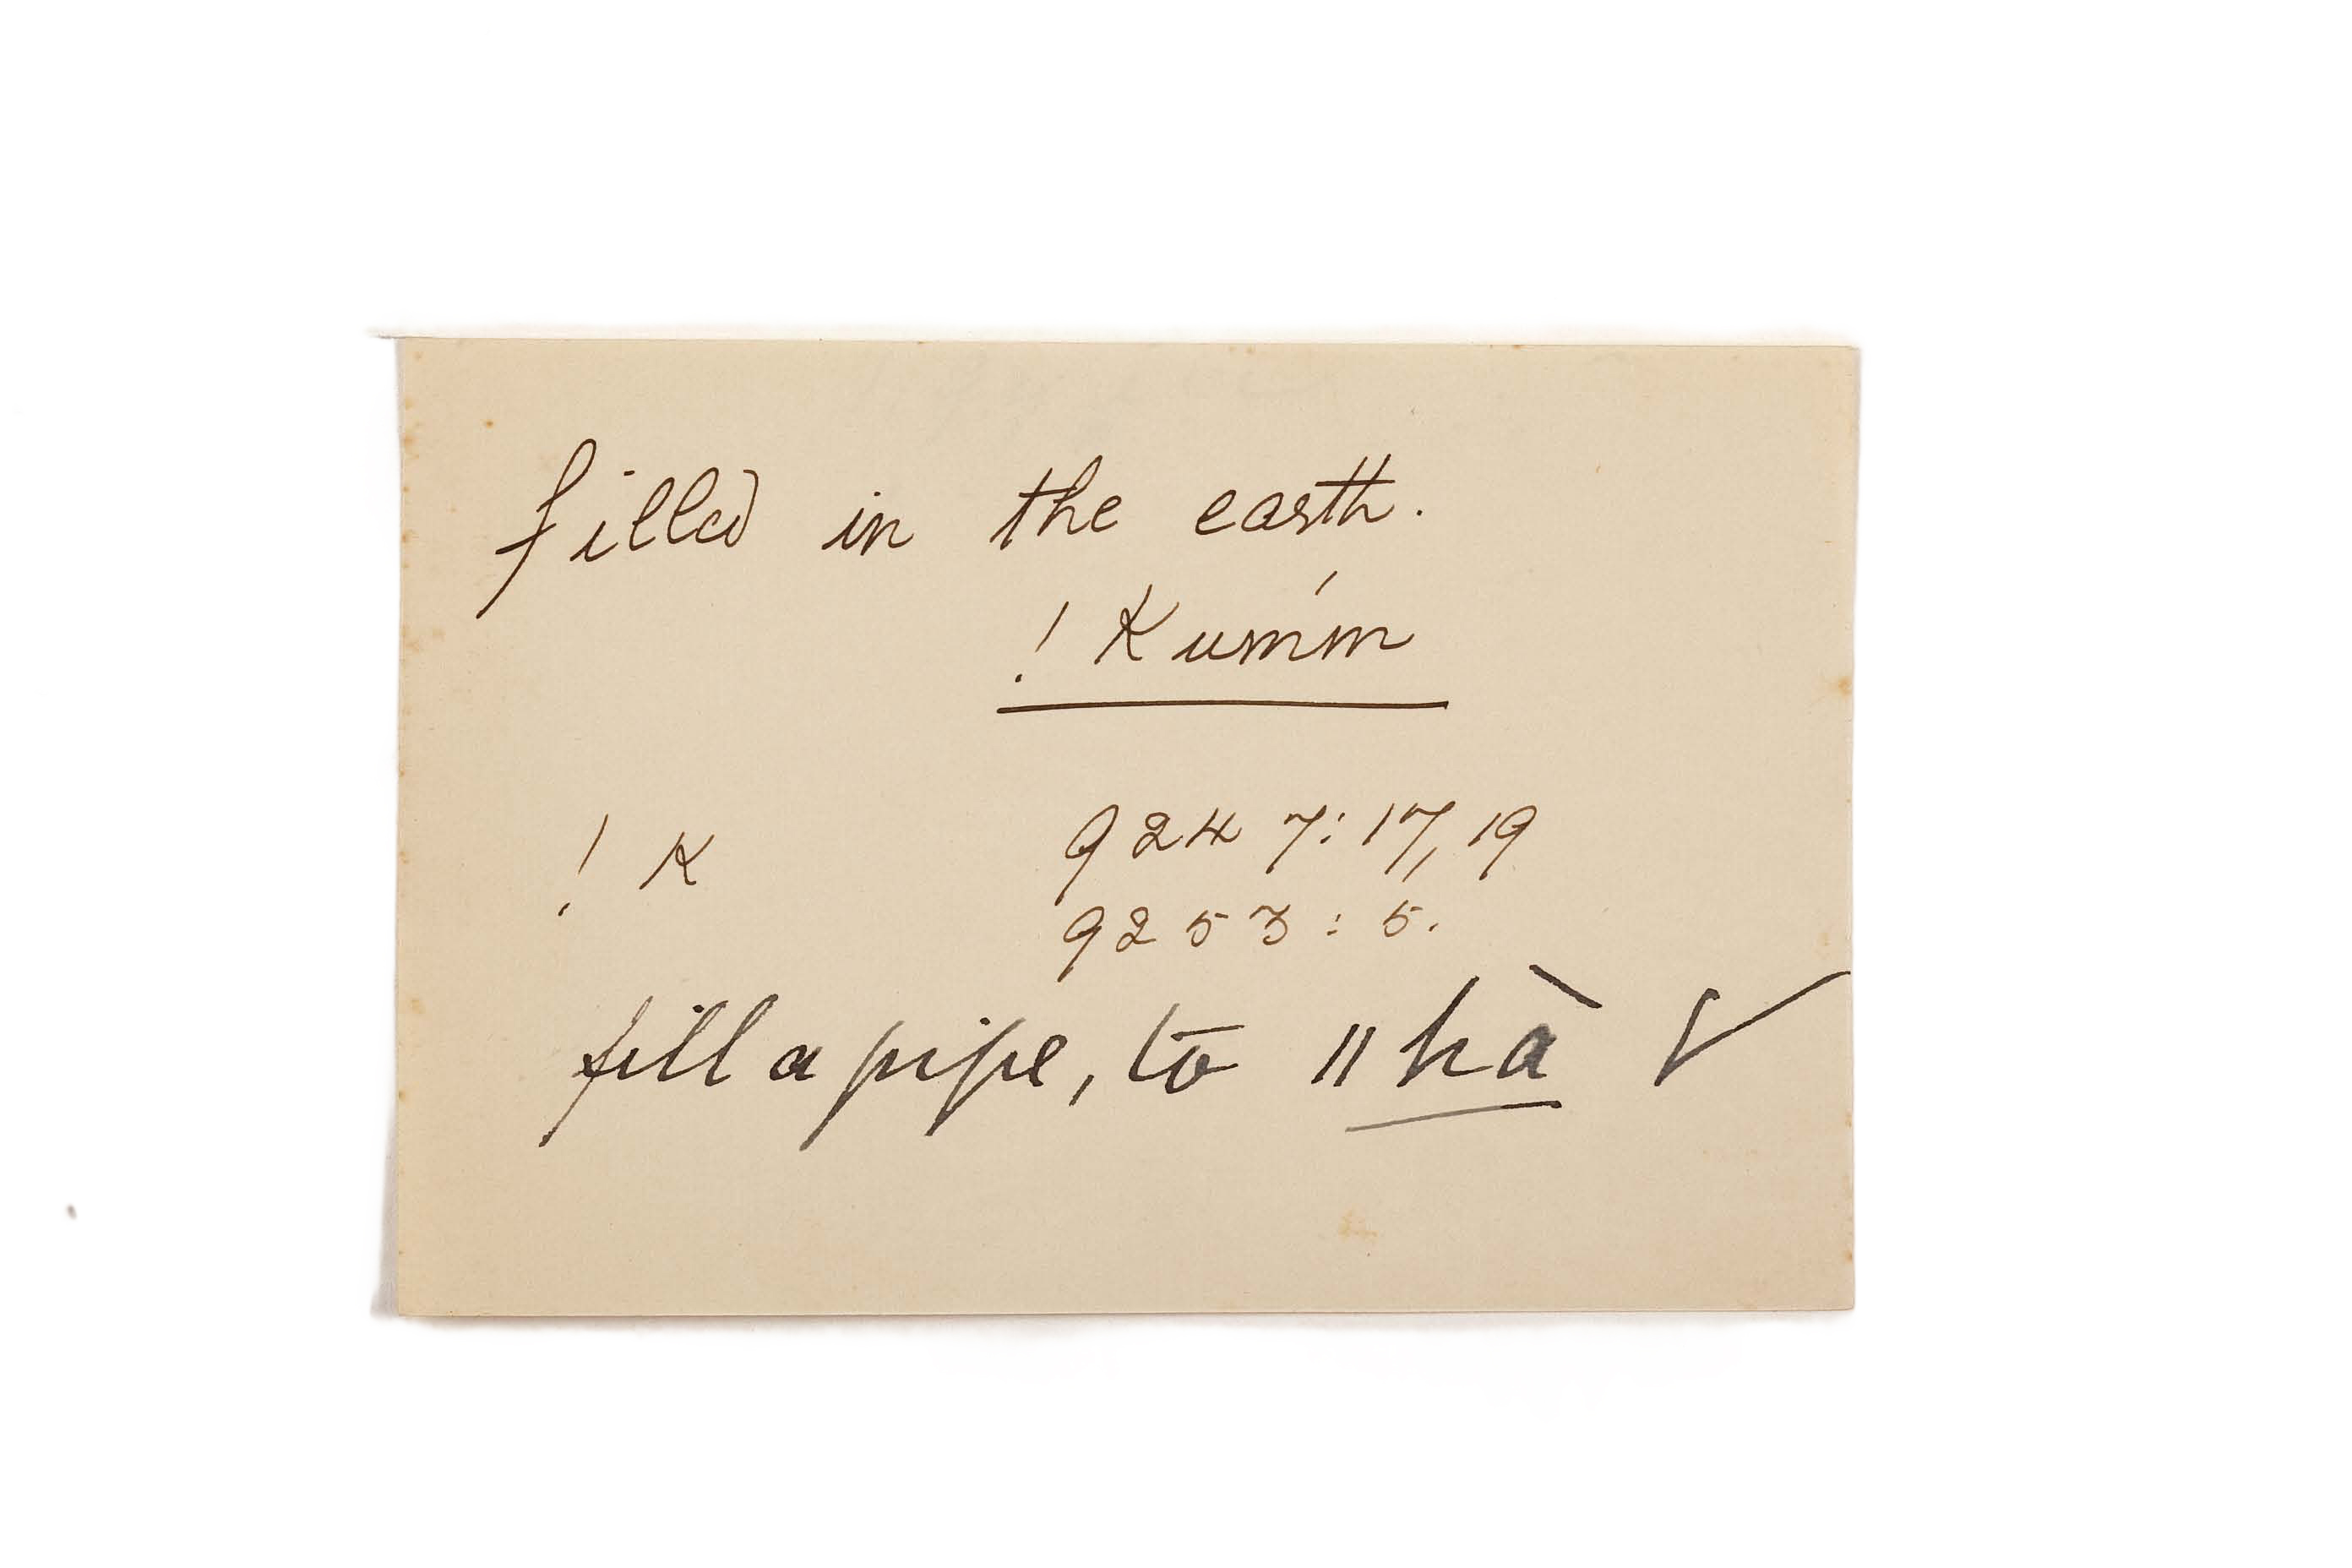 filled in the earth.
! Kumḿ
! K 9247: 17, 19
9253: 5.
fill a pipe, to ǁhà ✓